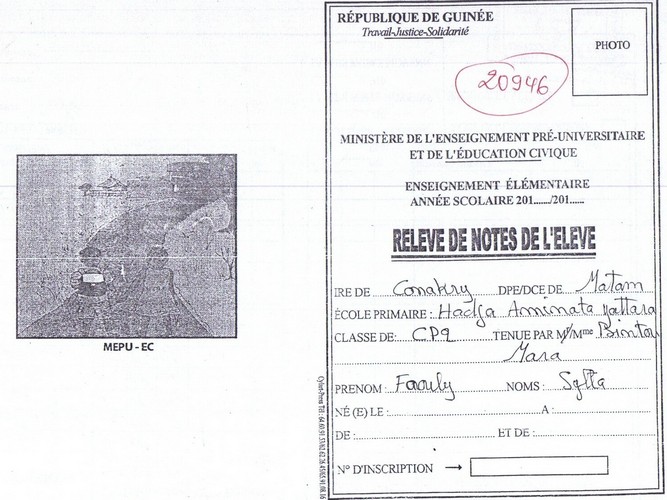 RÉPUBLIQUE DE GUINÉE
Travail-Justice-Solidarité
PHOTO
20946
MINISTÈRE DE L'ENSEIGNEMENT PRÉ-UNIVERSITAIRE
ET DE L'ÉDUCATION CIVIQUE
ENSEIGNEMENT ÉLÉMENTAIRE
ANNÉE SCOLAIRE 201....../201......
RELEVE DE NOTES DE L'ELEVE
IRE DE Conakry DPE/DCE DE Matam
ÉCOLE PRIMAIRE : Hadja Aminata Yattara
CLASSE DE: TENUE PAR M/Mme Bintou
Mara
PRENOM : NOMS : Sylla
NÉ (E) LE : A :
DE : ET DE :
N° D'INSCRIPTION →
MEPU - EC